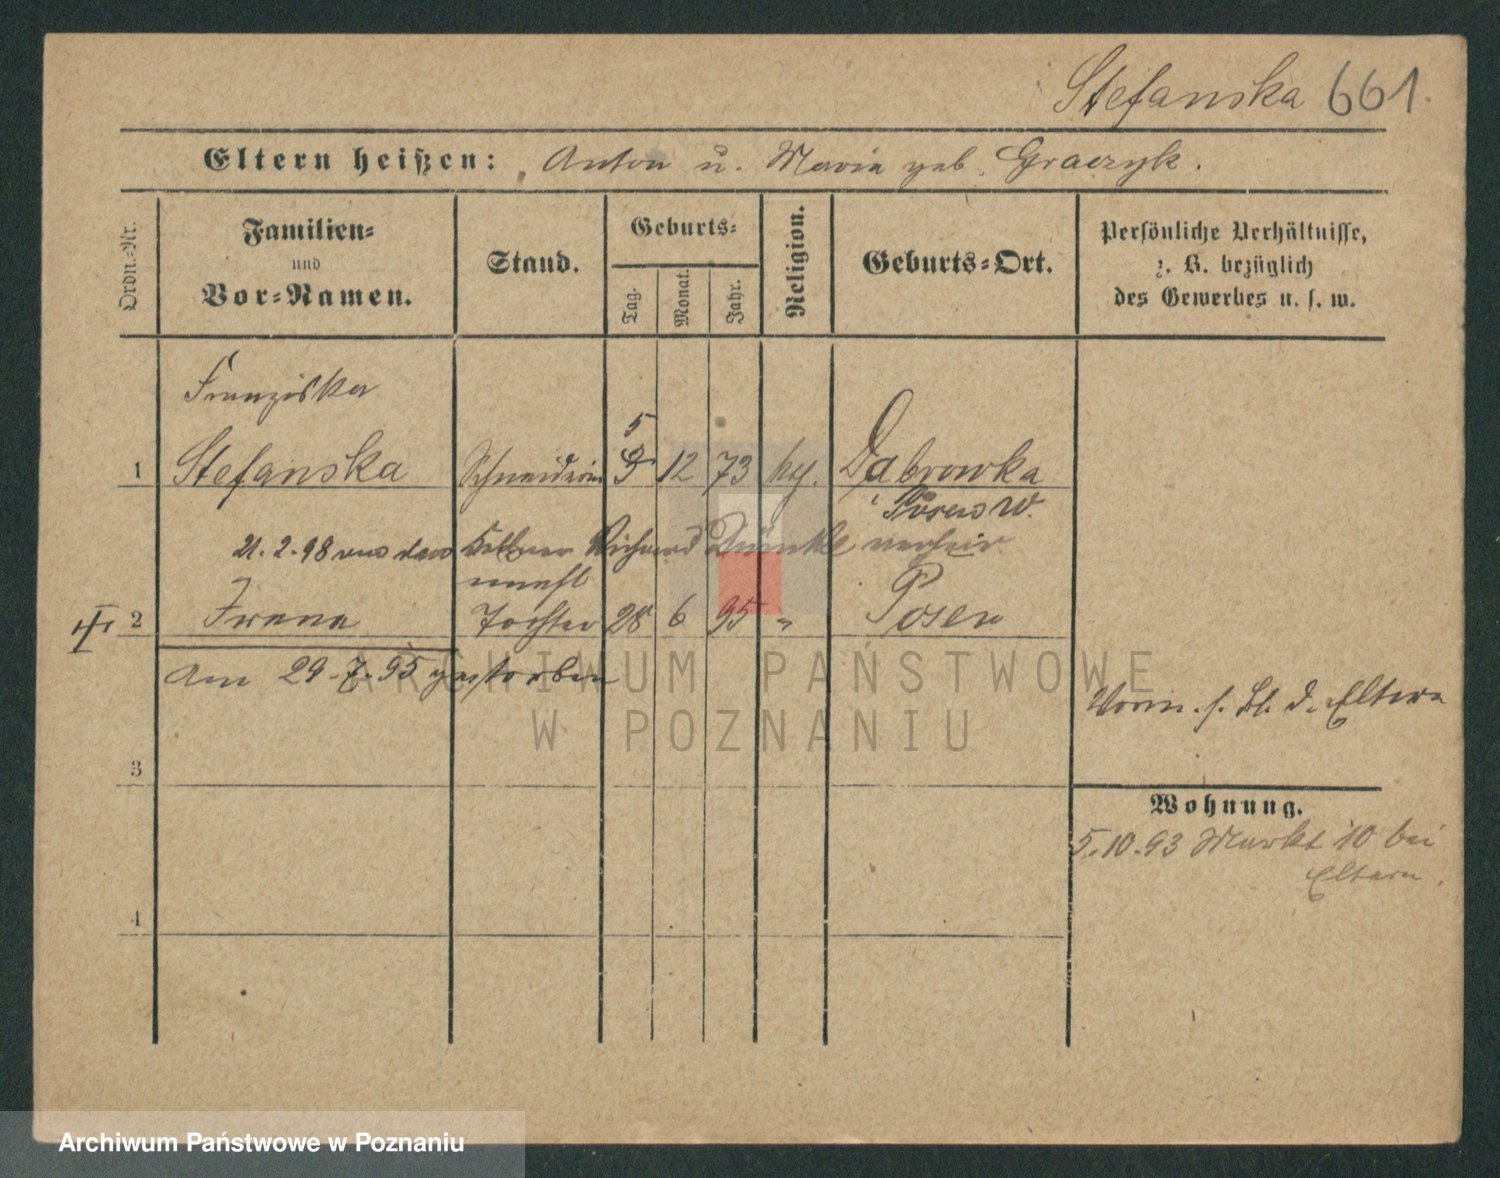 Stefanska 661.
Eltern heißen: Anton u. Maria geb. Graczyk.
Ordn.-Nr.
Familien-
und
Vor-Namen.
Stand.
Geburts-
Tag.
Monat.
Jahr.
Religion.
Geburts-Ort.
Persönliche Verhältnisse,
z. B. bezüglich
des Gewerbes u. s. w.
Franziska
1 Stefanska Schneiderin 5 12 73 Dąbrowka
Posen W.
21.2.98 Kellner Richard verheir.
unehl
2 Irena Tochter 28 6 95 " Posen
Am 29.7.95 gestorben
ARCHIWUM PAŃSTWOWE
W POZNANIU
Vorm. s. Bl. d. Eltern
3
Wohnung.
5.10.93 Markt 10 bei
Eltern.
4
Archiwum Państwowe w Poznaniu